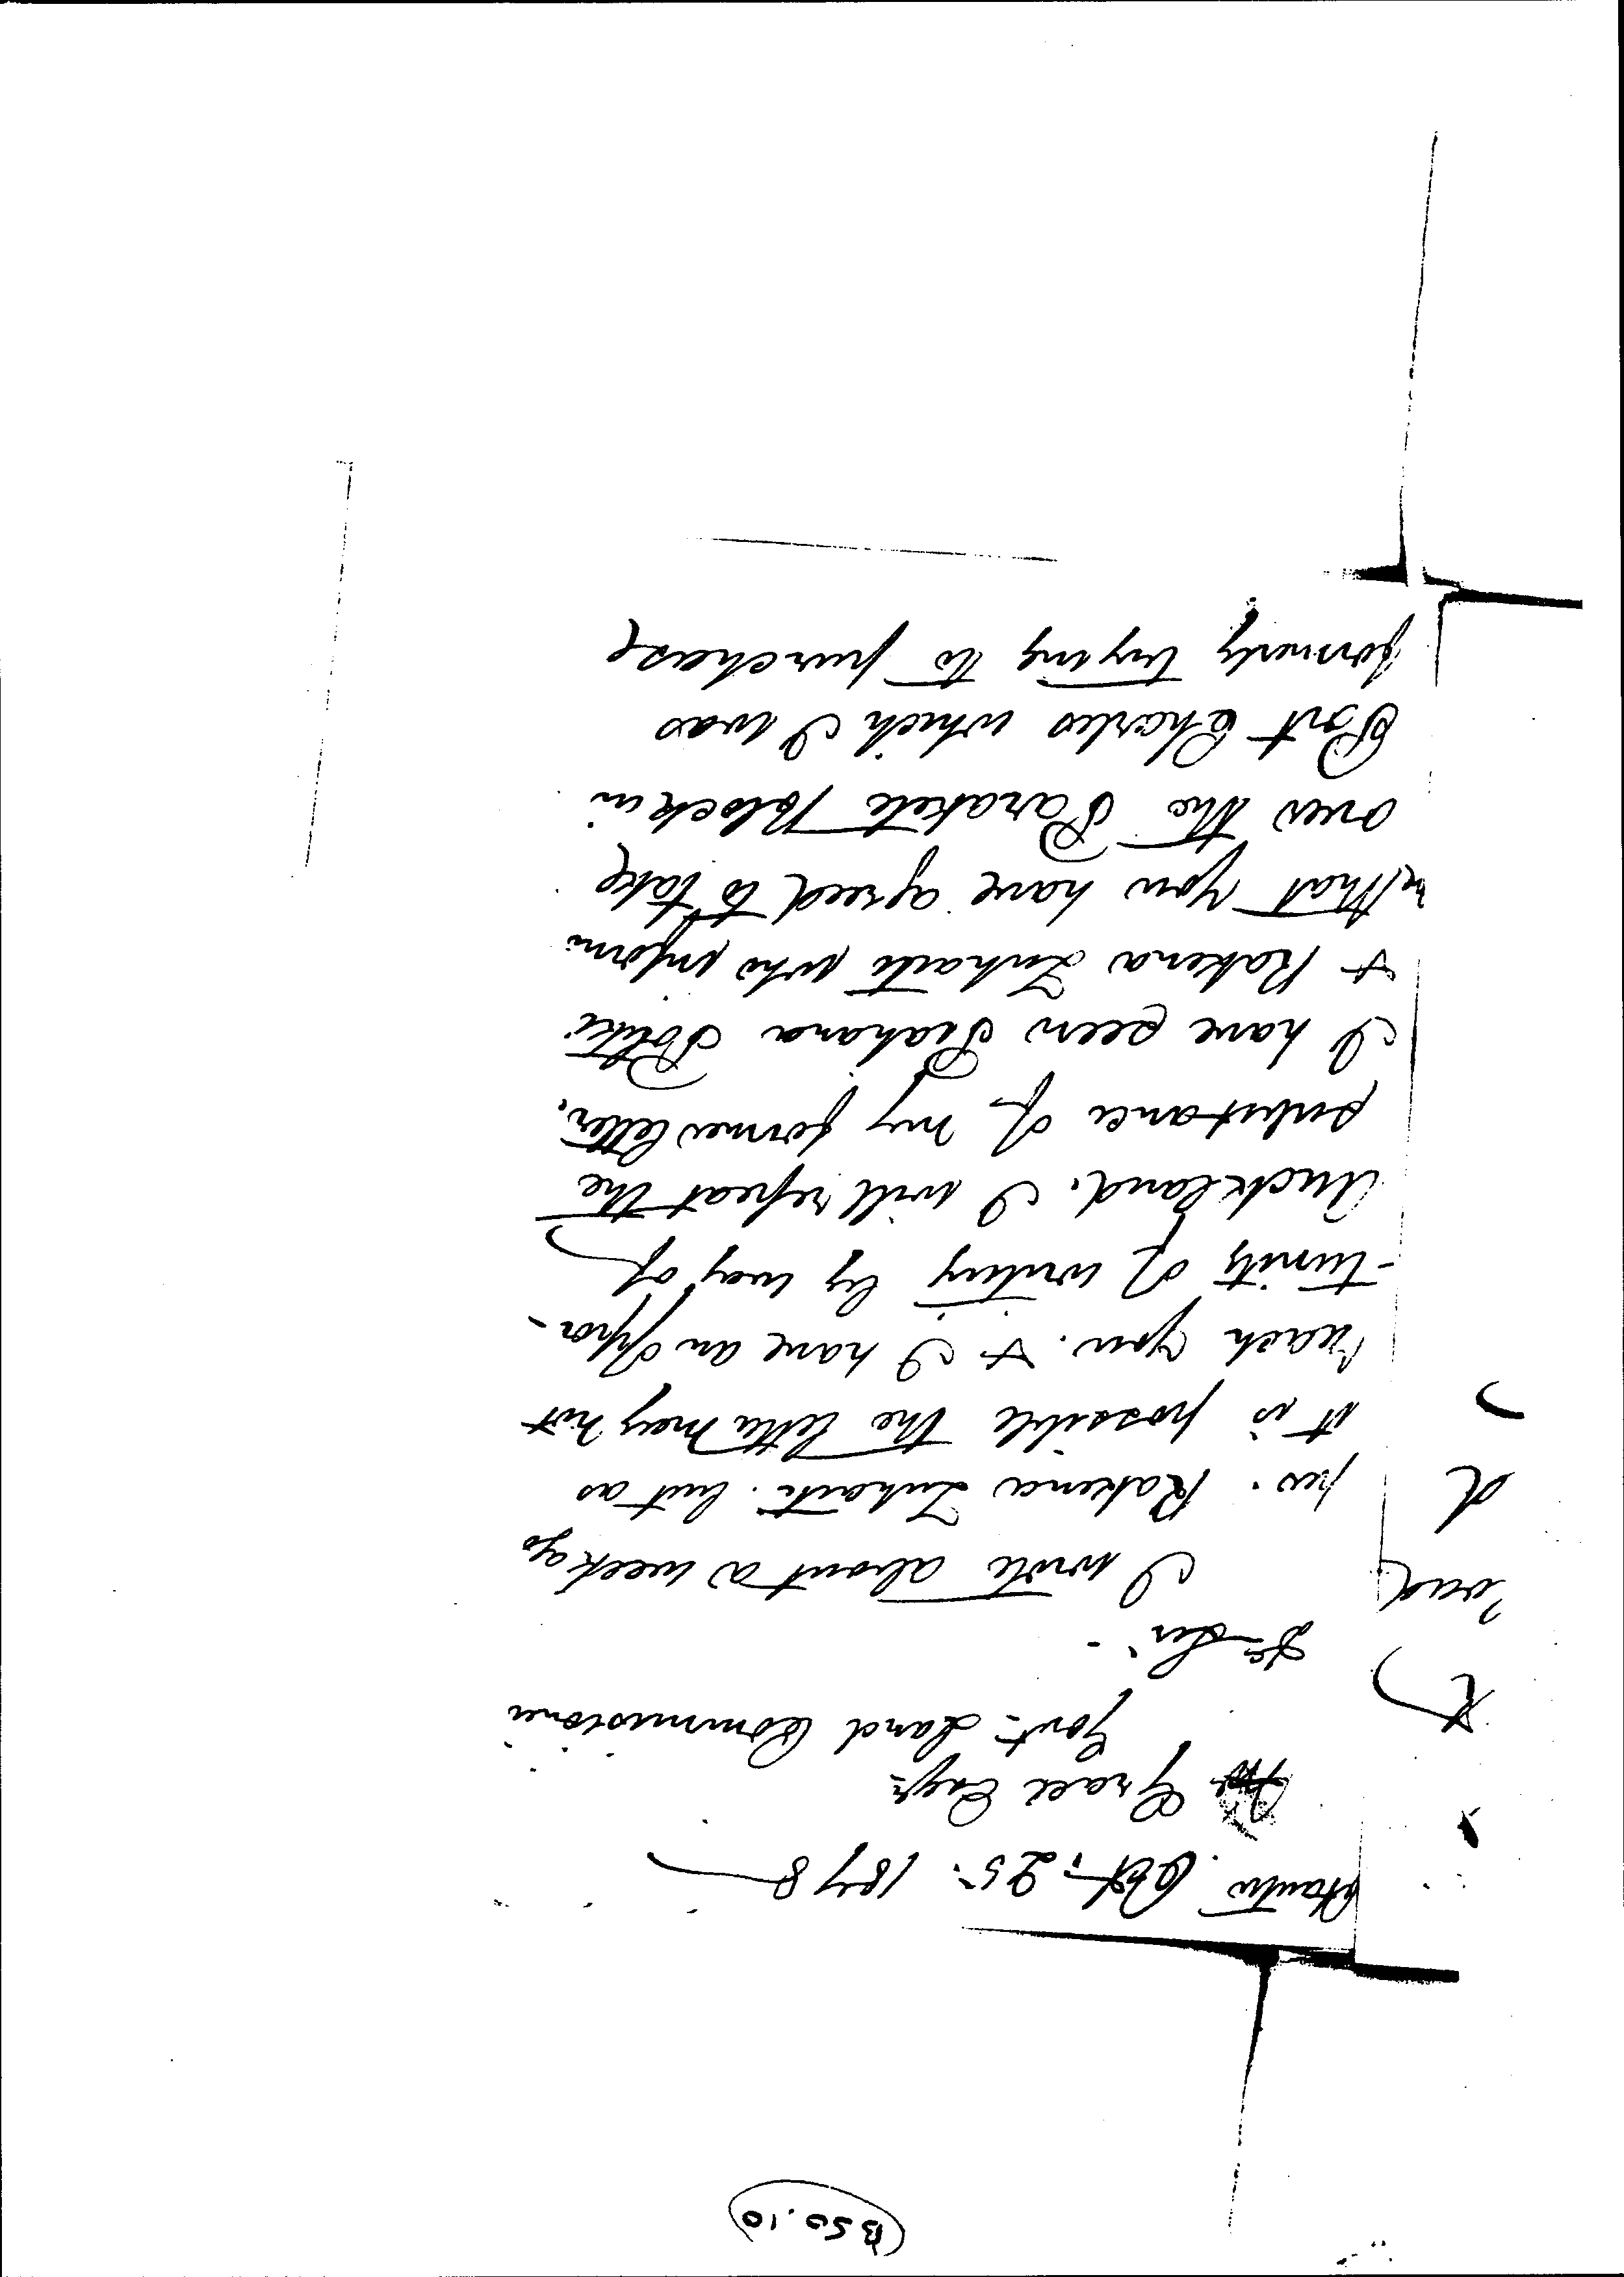 B50.10
Oct. 25. 1878
Grace Esqr.
Govt. Land Commissioner
Dr Sir -
I wrote about a week ago
per. Rakena but as
it is possible the letter may not
reach you. & I have an oppor-
-tunity of writing by way of
Auckland. I will repeat the
substance of my former letter.
I have seen Piahana
& Rakena who inform
me/that you have agreed to take
over the Parakete Block in
Port Charles which I was
formerly trying to purchase